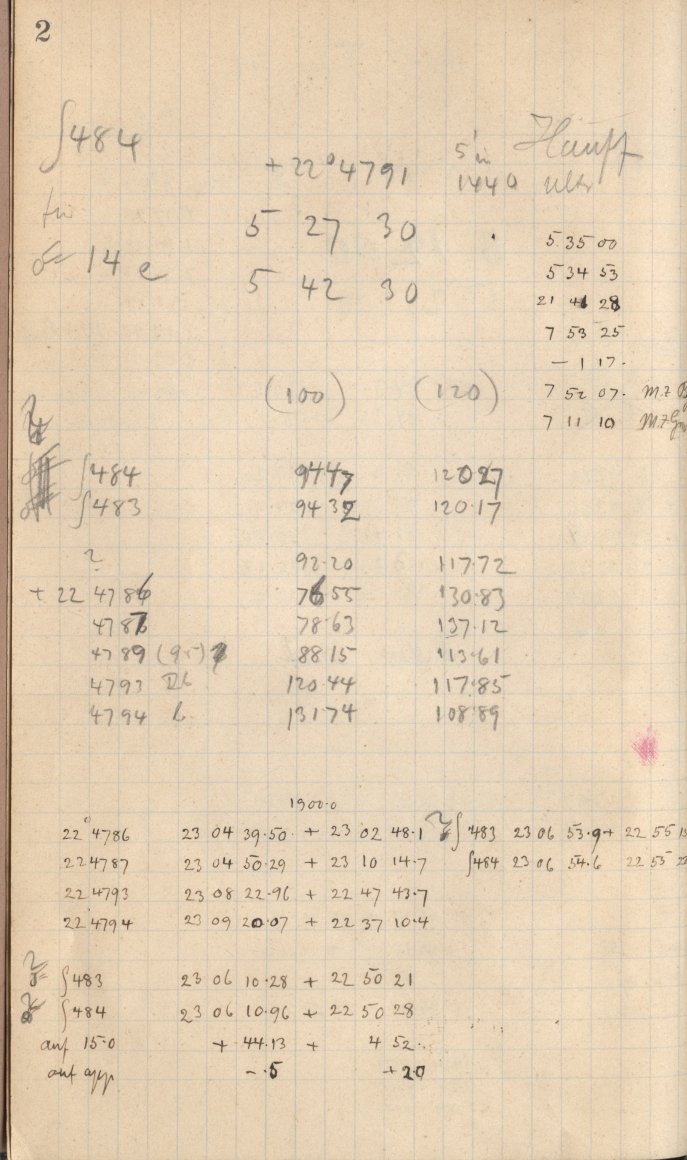 2
∫484
+22°4791
5 in
1440
5 27 30
14 e
5 42 30
5 35 00
5 34 53
21 41 28
7 53 25
— 1 17.
7 52 07. M.Z
7 11 10 M.Z
(100) (120)
∫484 9447 120 27
∫483 94 32 120.17
? 92.20 117.72
+ 22 4786 7655 130.83
4787 78.63 137.12
4789 (9.5) 88 15 113.61
4793 120.44 117.85
4794 131 74 108.89
1900.0
22°4786 23 04 39.50 + 23 02 48.1 ∫483 23 06 53.9+ 22 55
22 4787 23 04 50.29 + 23 10 14.7 ∫484 23 06 54.6 22 55
22 4793 23 08 22.96 + 22 47 43.7
22°4794 23 09 20.07 + 22 37 10.4
∫483 23 06 10.28 + 22 50 21
∫484 23 06 10.96 + 22 50 28
auf 15.0 + 44.13 + 4 52.
auf app — .5 +20